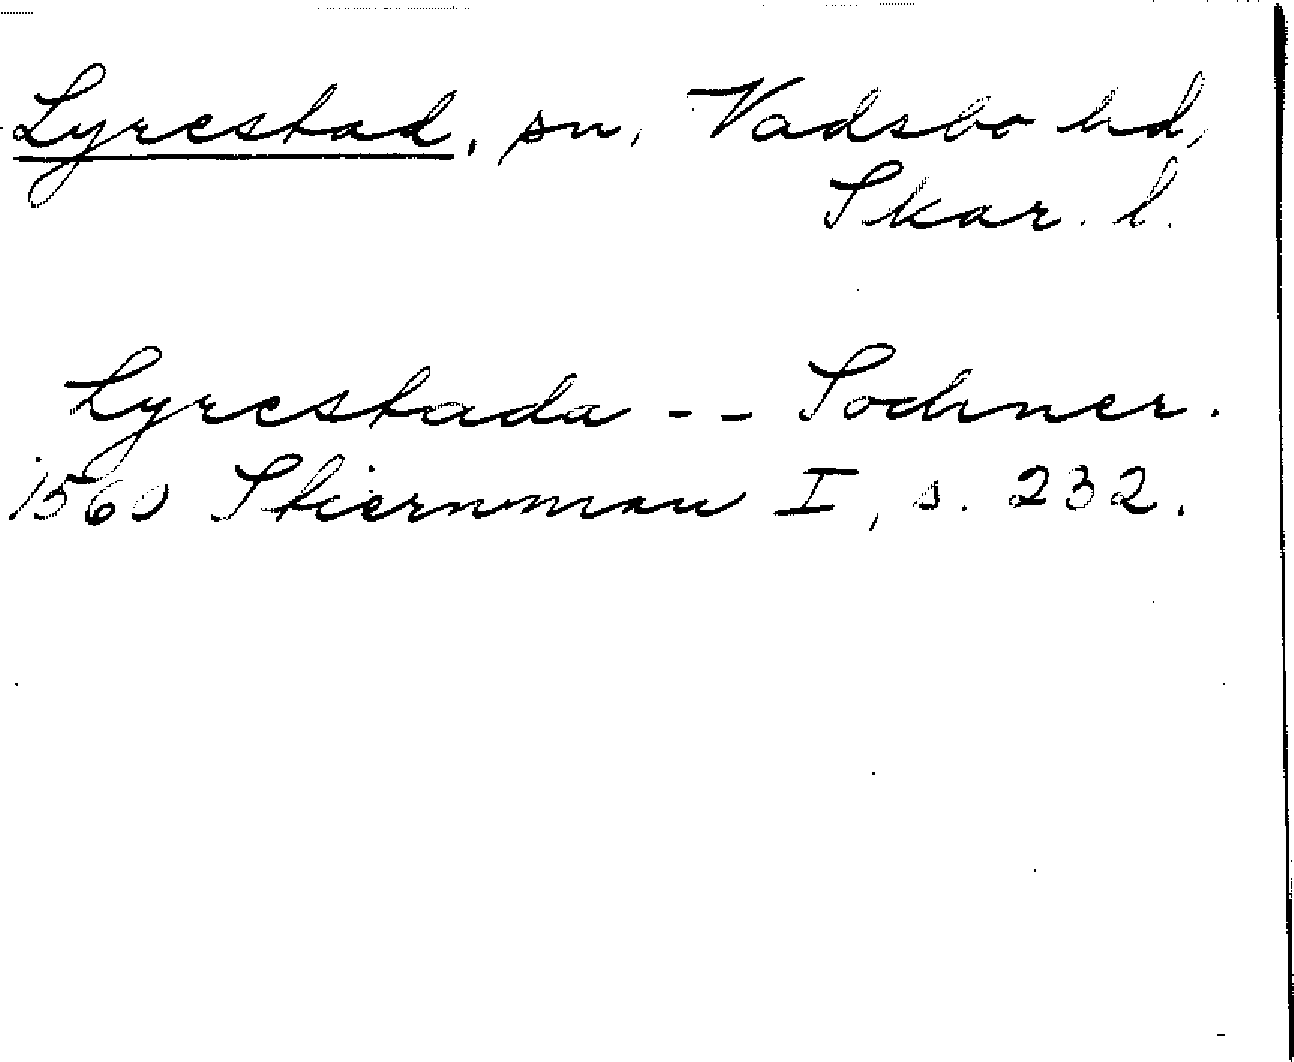 Lyrestad, sn, Vadsbo hd,
Skar. l.
Lyrestada -- Sochner.
1560 Stiernman I, s. 232.